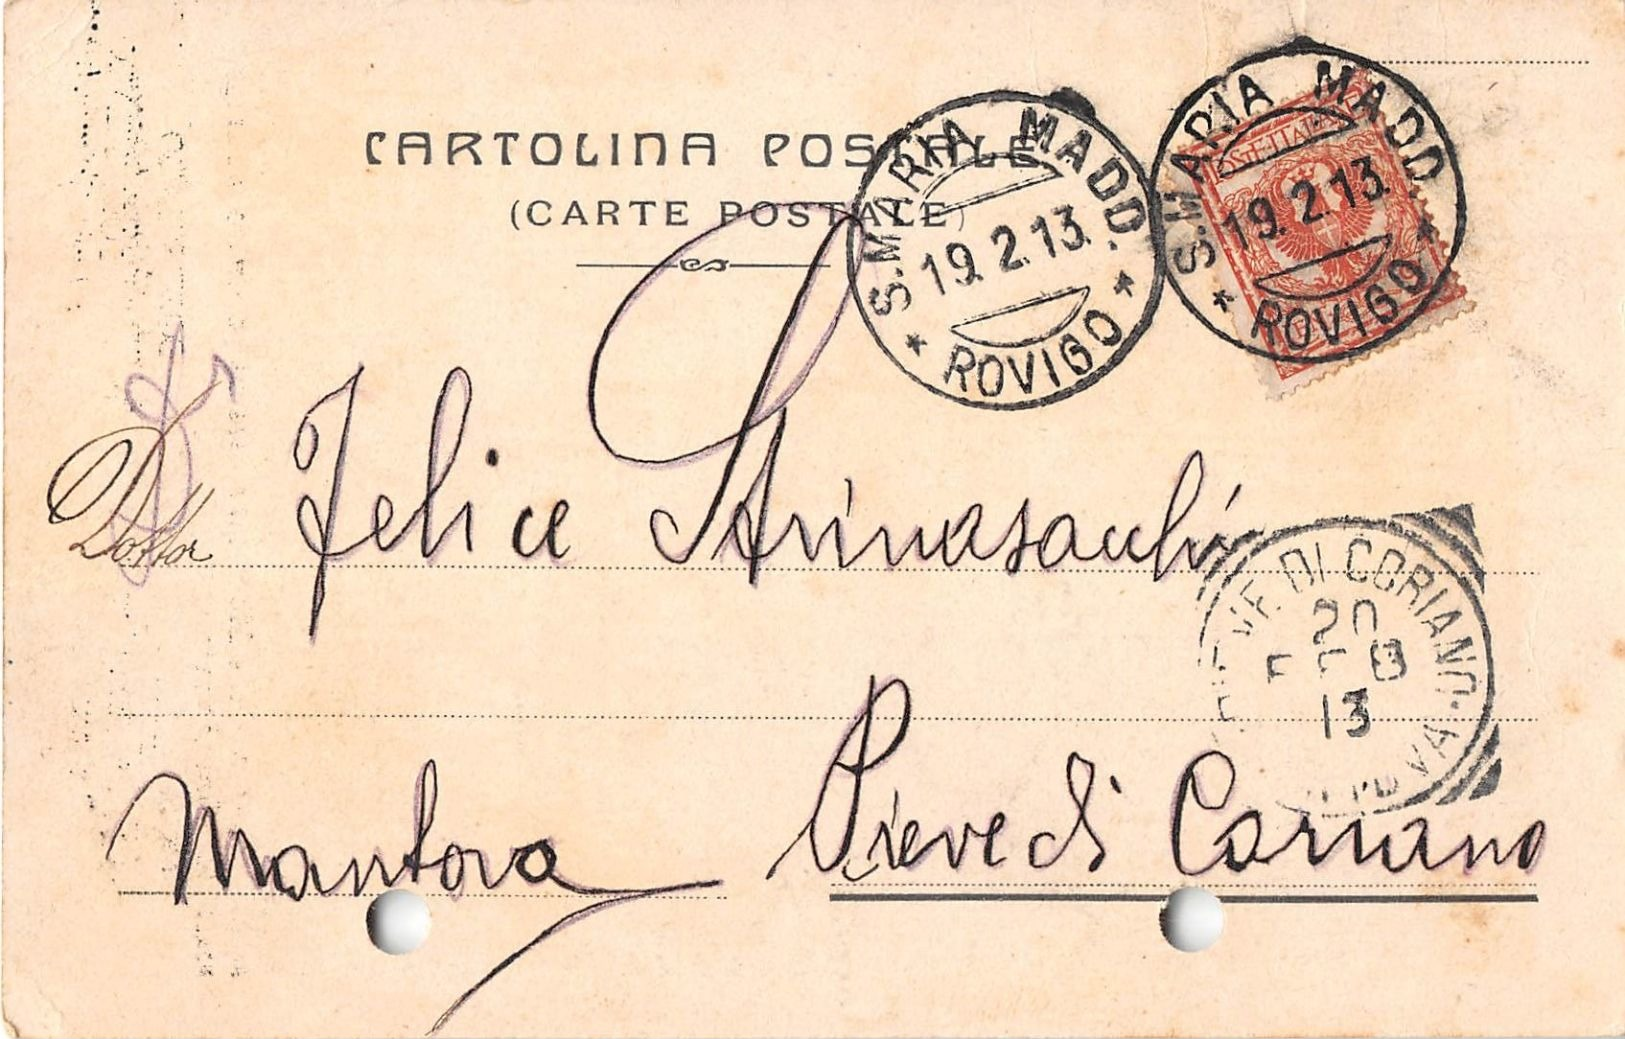 CARTOLINA POSTALE
(CARTE POSTALE)
S. MARIA MADD.
19.2.13.
* ROVIGO *
S. MARIA MADD
19.2.13.
* ROVIGO *
Dottor Felice Strinasacchi
PIEVE DI CORIANO
20
FEB
13
Pieve di Coriano
Mantova